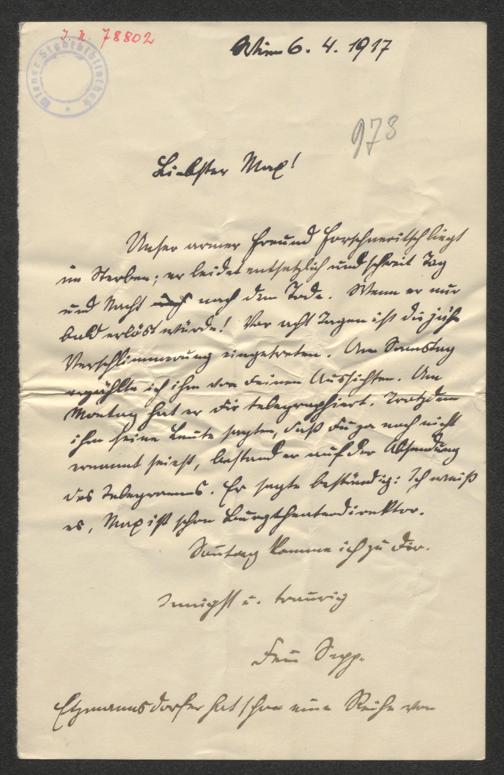 I. N. 78802
Wiener Stadtbibliothek
Wien 6. 4. 1917
973
Liebster Max!
Unser armer Freund Forschneritsch liegt
im Sterben; er leidet entsetzlich und schreit Tag
und Nacht nach dem Tode. Wenn er nur
bald erlöst würde! Vor acht Tagen ist die jähe
Verschlimmerung eingetreten. Am Samstag
erzählte ich ihm von deinen Aussichten. Am
Montag hat er dir telegraphiert. Trotzdem
ihm seine Leute sagten, daß du ja noch nicht
ernannt seiest, bestand er auf der Absendung
des Telegramms. Er sagte beständig: Ich weiß
es, Max ist schon Burgtheaterdirektor.
Sonntag komme ich zu dir.
Innigst u. traurig
Dein Sepp.
Etzmannsdorfer hat schon eine Reihe von